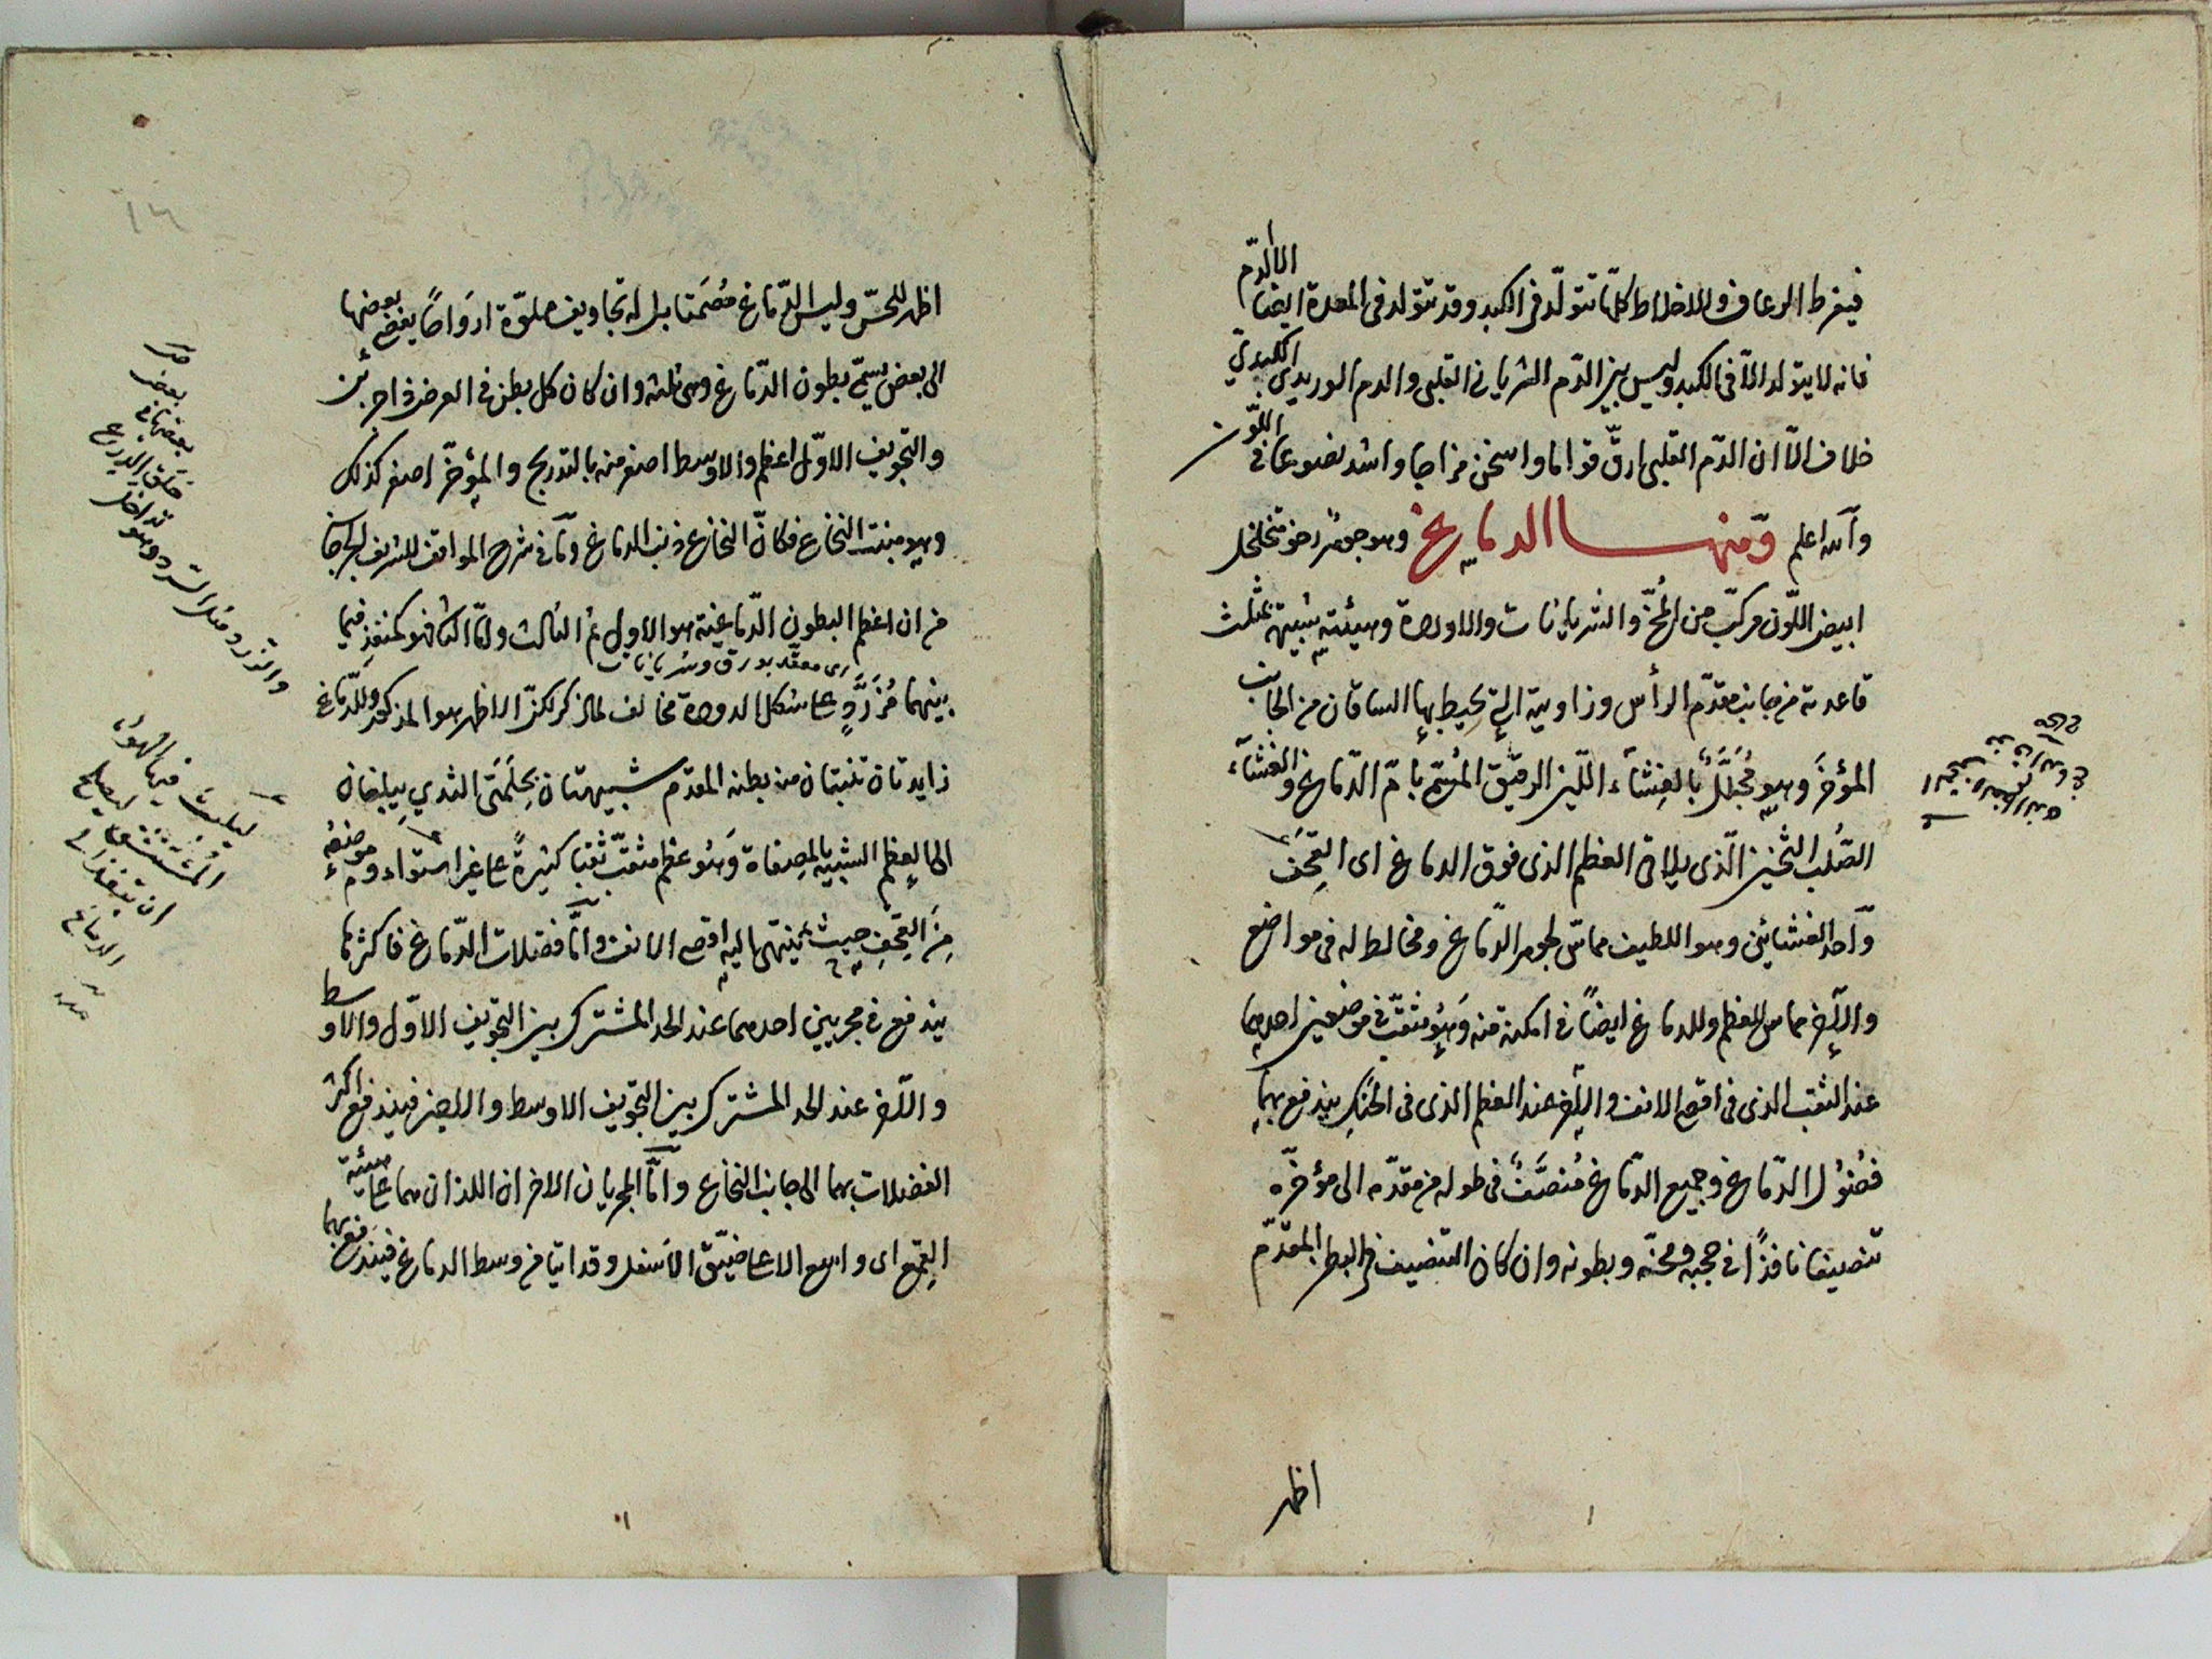 فيفرط الرعاف والاخلاط كلّها تتولّد فى الكبد وقد تتولد فى المعدة ايضا الا الدّم
فانه لا يتولد الاّ فى الكبد وليس بين الدّم الشريانى القلبى والدم الوريدى الكبدىّ
خلاف الاّ ان الدّم القلبى ارقّ قواما واسخن مزاجا واشد نصوعا فى اللّون
وآلله اعلم ومنها الدماغ وهو جوهر رخو متخلخل
ابيض اللّون مركّب من المُخّ والشريانات والاوردة وهيئته شبيهة بمثلث
قاعدته من جانب مقدّم الرأس وزاويته التى يحيط بها الساقان من الجانب
المؤخر وهو مُجَلَّلٌ بالغِشآء الليّن الرقيق المُسمّى بامّ الدّماغ والغشآء
الصُّلب الثخين الّذى يلاقى العظم الذى فوق الدماغ اى القِحْف
وآحد الغشائين وهو اللطيف مماسّ لجوهر الدّماغ ومخالط له فى مواضع
والآخر مماس للعظم وللدماغ ايضاً فى امكنة منه وهو مثقّب فى موضعين احدهما
عند الثقب الذى فى اقصى الانف والآخر عند العظم الذى فى الحنك يندفع بهما
فضُوُل الدّماغ وجميع الدّماغ مُنصَّفٌ فى طوله من مقدّمه الى مؤخّره
تنصيفا نافذاً فى حجبه ومخّه وبطونه وان كان التنصيف فى البطن المقدّم
اظهر
اظهر للحسّ وليس الدّماغ مُصَمتا بل له تجاويف مملوّة ارواحاً يفضى بعضها
الى بعض يسمّى بطون الدّماغ وهى ثلثه وان كان كل بطن فى العرض ذا جزئين
والتجويف الاوّل اعظم والاوسط اصغر منه بالتدريج والمؤخّر اصغر كذلك
وهو منبت النخاع فكانّ النخاع ذنب الدماغ ومآ فى شرح المواقف للشريف الجرجانى
من ان اعظم البطون الدّماغية هو الاول ثم الثالث وامّا الثانى فهو كمنفذ فيما
اى معقّد بعروق وشريانات
بينهما مُزَرَّدٍ على شكل الدودة مخالف لما ذكر لكن الاظهر هو المذكور وللدّماغ
زايدتان تنبتان من بطنه المقدّم شبيهتان بحَلَمَتَى الثدي يبلغان
الى العظم الشبيه بالمصفاة وهو عظم مثقّب ثُقَبا كثيرةً على غير استواء وموضعه
مِنَ القِحْفِ حيث ينتهى اليه اقصى الانف وامّا فضلات الدّماغ فاكثرها
يندفع فى مجريين احدهما عند الحد المشترك بين التجويف الاوّل والاوسط
والآخر عند الحد المشترك بين التجويف الاوسط والاخير فيندفع اكثر
الفضلات بهما الى جانب النخاع وآمّا المجريان الاخران اللذان هما على هيئة
القمع اى واسع الاعلى ضيّق الاسفل وقد اتيا من وسط الدماغ فيندفع بهما
بعض
بعضها فى
حلق الدرع
تداخل
والزرد مثل السرد وهو
ليلبث فيها الهوآء
المُستنشق ليصلح
ان ينفذ الى
الدماغ